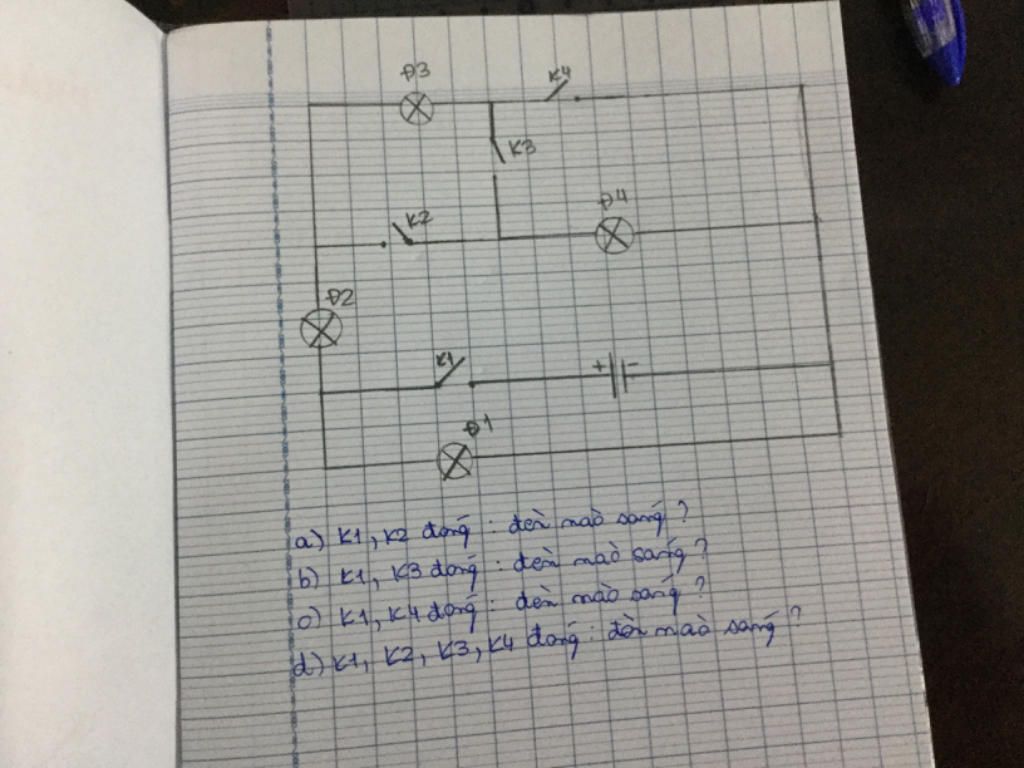 Đ3
K4
K3
Đ4
K2
Đ2
K1
+ -
Đ1
a) K1, K2 đóng : đèn nào sáng ?
b) K1, K3 đóng : đèn nào sáng ?
c) K1, K4 đóng : đèn nào sáng ?
d) K1, K2, K3, K4 đóng : đèn nào sáng ?